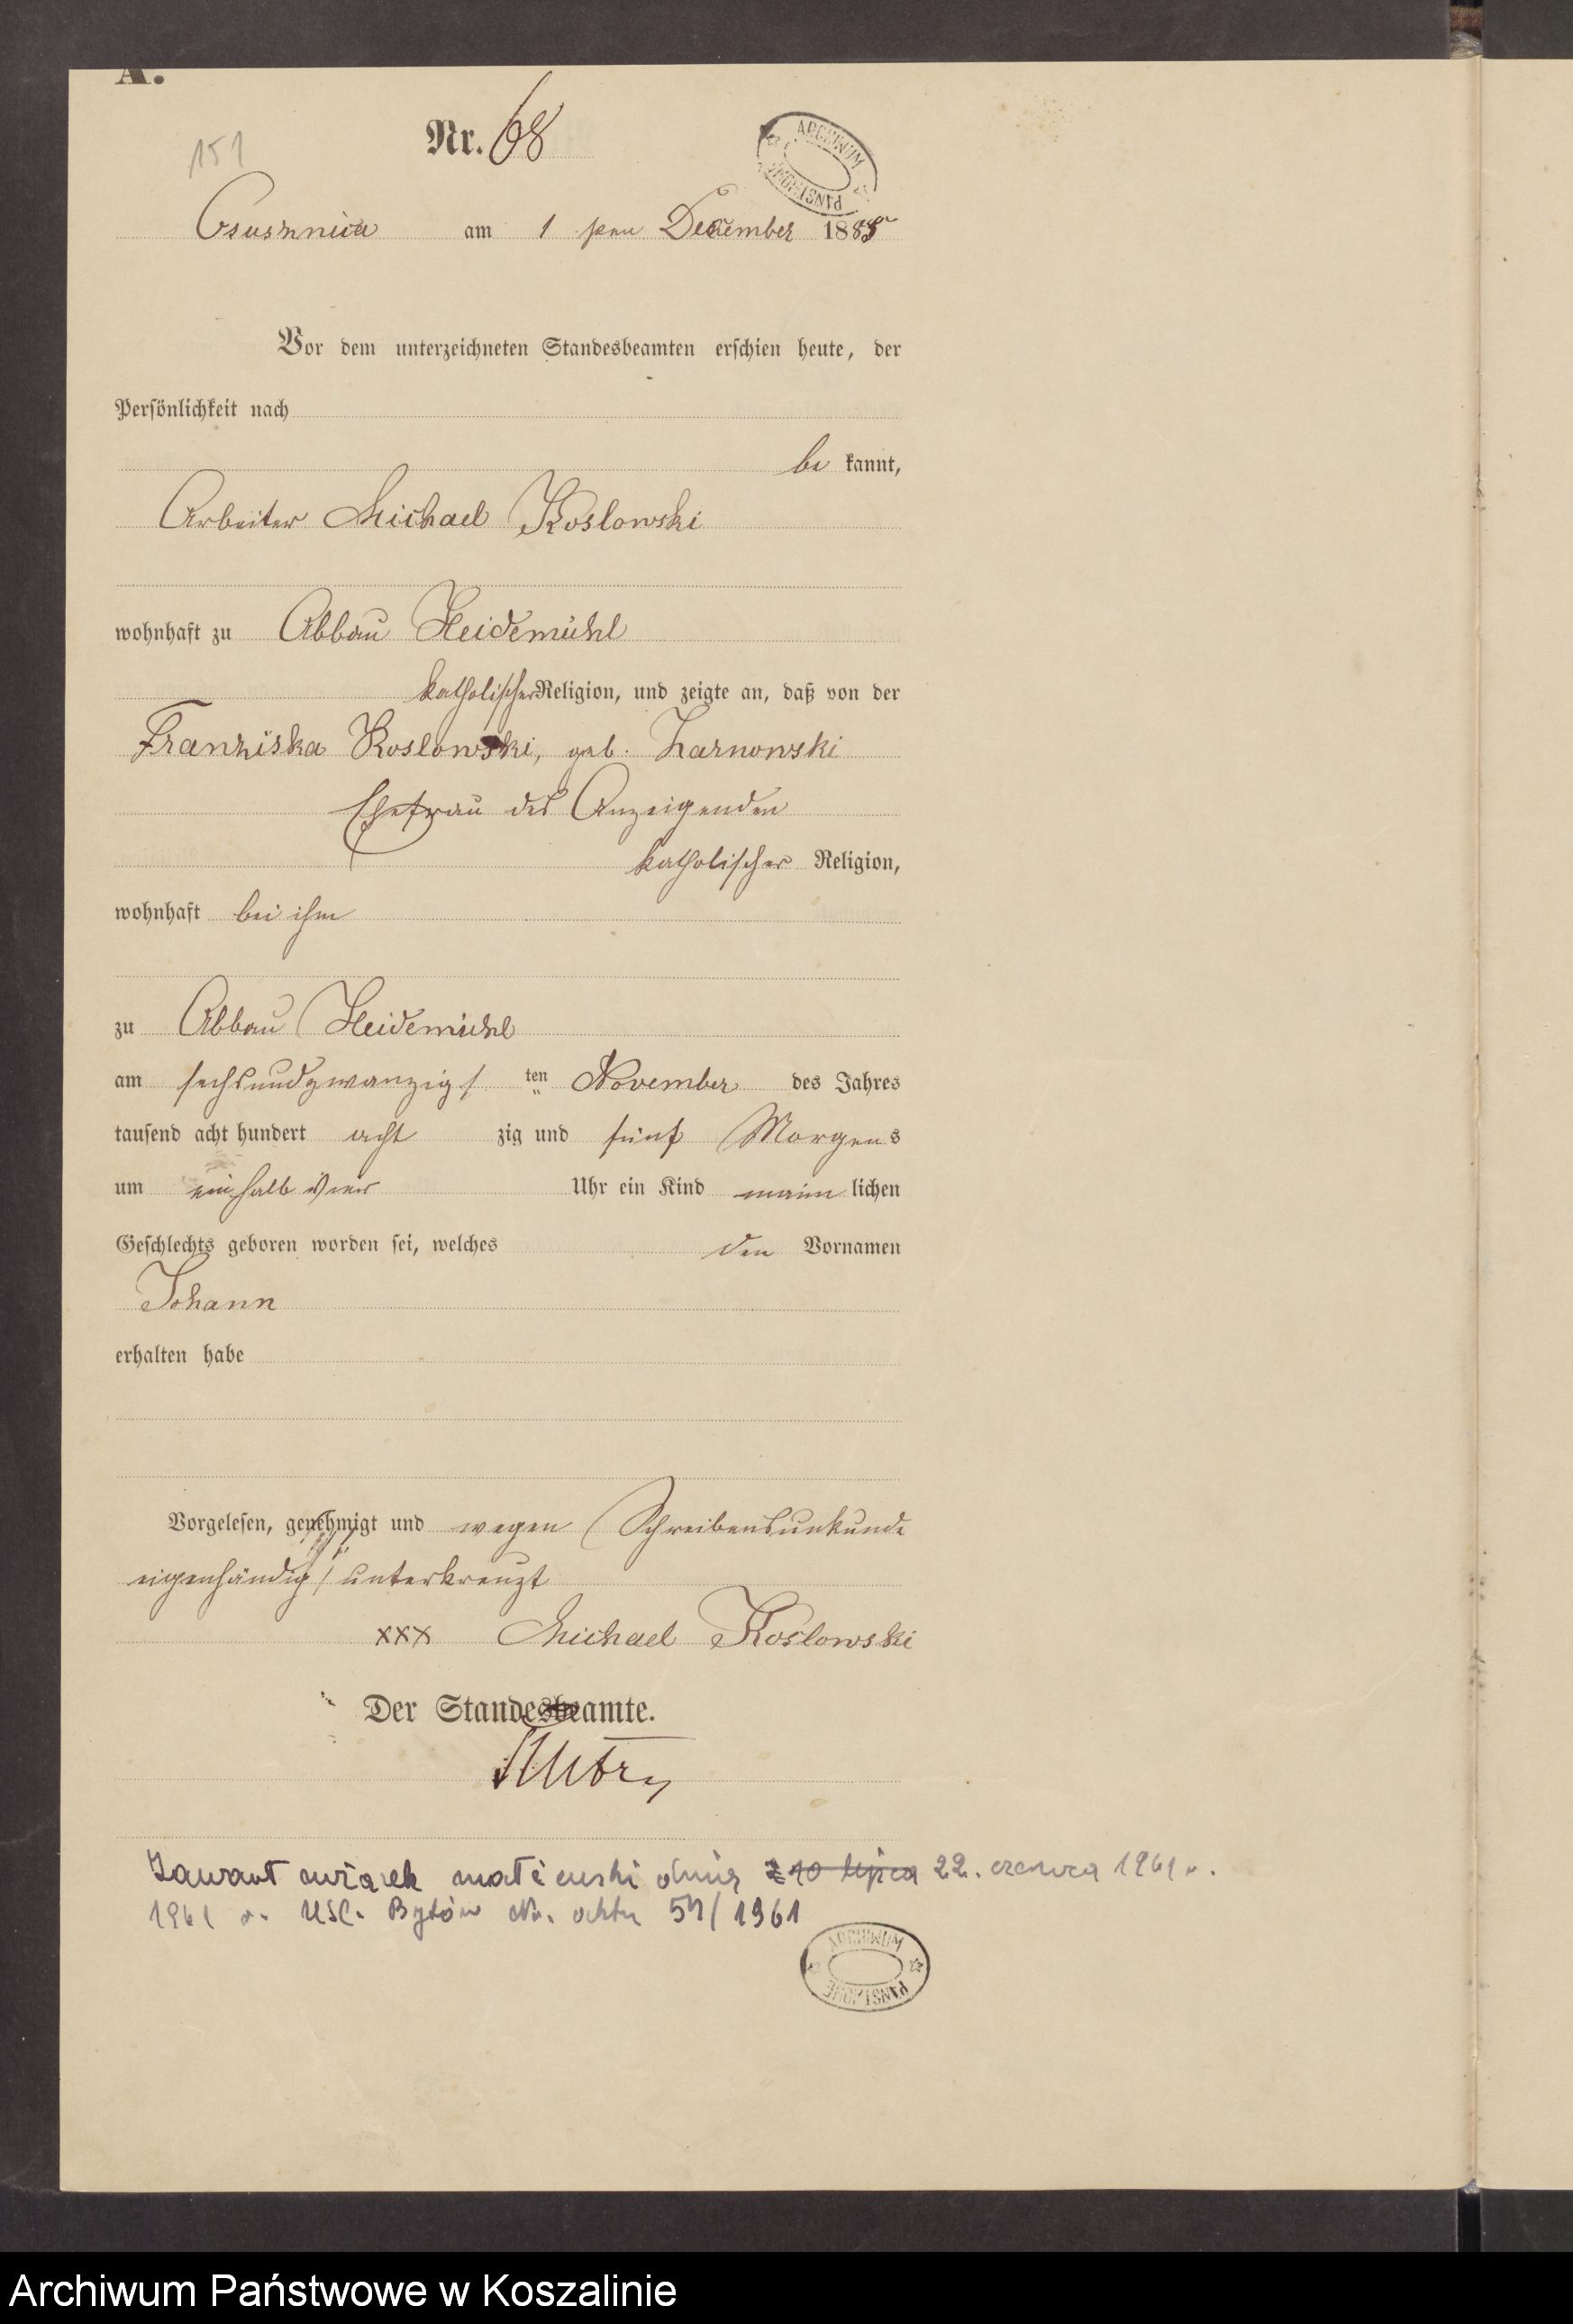 A.
151
Nr. 68
ARCHIWUM PAŃSTWOWE
Osusznica am 1 ten December 1885
Vor dem unterzeichneten Standesbeamten erschien heute, der
Persönlichkeit nach
be kannt,
Arbeiter Michael Koslowski
wohnhaft zu Abbau Heidemühl
katholischer Religion, und zeigte an, daß von der
Franziska Koslowski, geb. Zarnowski
Ehefrau des Anzeigenden
katholischer Religion,
wohnhaft bei ihm
zu Abbau Heidemühl
am sechsundzwanzigs ten November des Jahres
tausend acht hundert acht zig und fünf Morgens
um einhalb vier Uhr ein Kind männ lichen
Geschlechts geboren worden sei, welches den Vornamen
Johann
erhalten habe
Vorgelesen, genehmigt und wegen Schreibensunkunde
eigenhändig unterkreuzt
xxx Michael Koslowski
Der Standesbeamte.
Zawarł związek małżeński dnia 10 lipca 22. czerwca 1961 r.
1961 r. USC. Bytów Nr. aktu 54/1961
ARCHIWUM PAŃSTWOWE
Archiwum Państwowe w Koszalinie